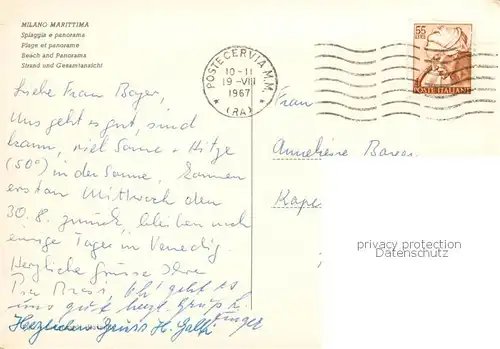 MILANO MARITTIMA
Spiaggia e panorama
Plage et panorama
Beach and Panorama
Strand und Gesamtansicht
POSTE CERVIA M.M.
10-11
19-VIII
1967
(RA)
55
LIRE
POSTE ITALIANE
Liebe Frau Bayer,
Uns geht es gut, sind
braun, viel Sonne + Hitze
(50°) in der Sonne. Kommen
erst am Mittwoch den
30.8. zurück, bleiben noch
einige Tage in Venedig.
Herzliche Grüsse Ihre
geht es
uns gut herzl.
Herzlichen Gruss H.
Frau
Anneliese
privacy protection